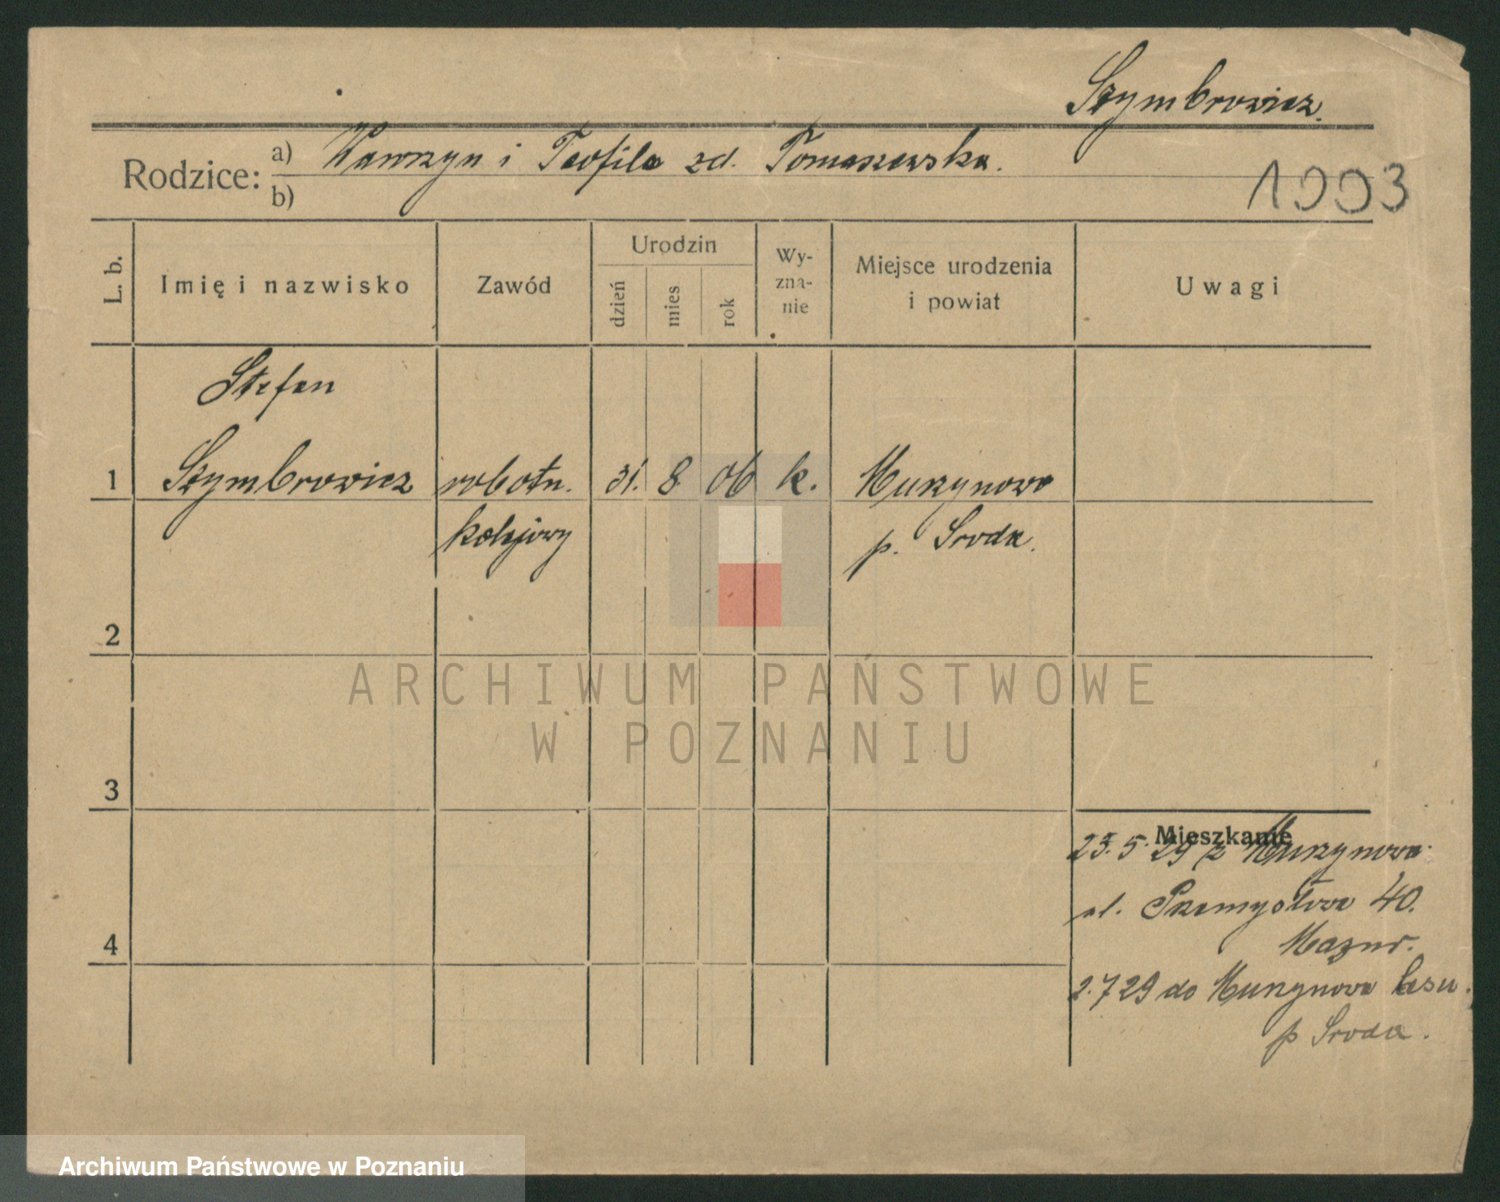 Szymbrowicz.
Rodzice: a) Wawrzyn i Teofila zd. Tomaszewska.
b)
1993
L. b.
Imię i nazwisko
Zawód
Urodzin
dzień
mies
rok
Wy-
zna-
nie
Miejsce urodzenia
i powiat
Uwagi
Stefan
1 Szymbrowicz robotn. 31. 8 06 k. Murzynowo
kolejowy p. Sroda.
2
ARCHIWUM PAŃSTWOWE
W POZNANIU
3
Mieszkanie
23.5.29 z Murzynowa
ul. Przemysłowa 40.
Mazur.
4
2.7 29 do Murzynowa lasu.
p Sroda.
Archiwum Państwowe w Poznaniu